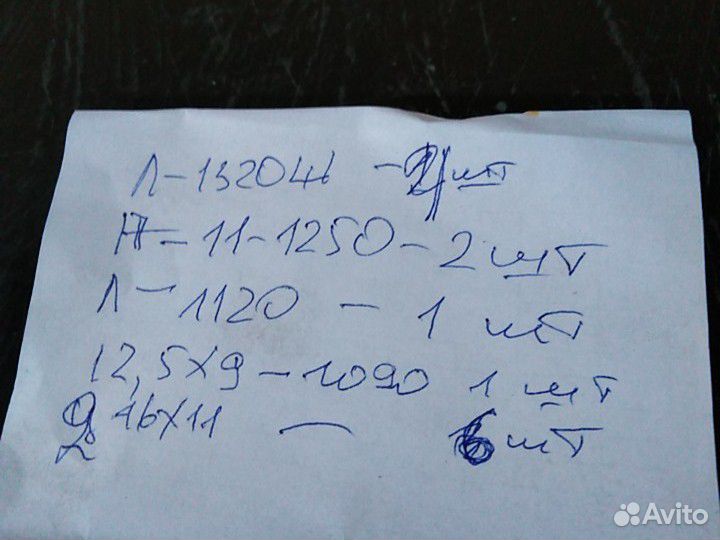 Л-1320
-11-1250-2 шт
Л-1120 - 1 шт
12,5х9-1090 1 шт
16х11 - шт
Avito